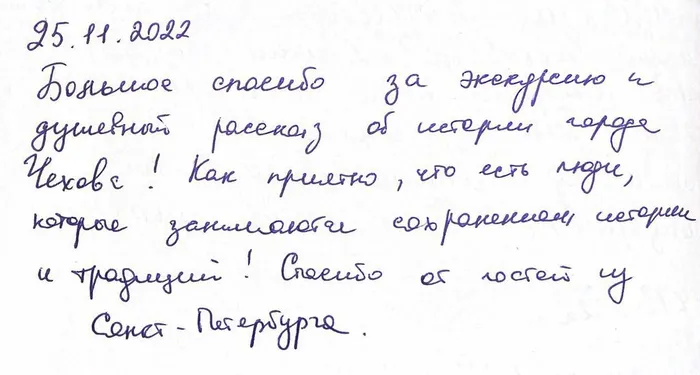 25.11.2022
Большое спасибо за экскурсию и
душевный рассказ об истории города
Чехова! Как приятно, что есть люди,
которые занимаются сохранением истории
и традиций! Спасибо от гостей из
Санкт-Петербурга.